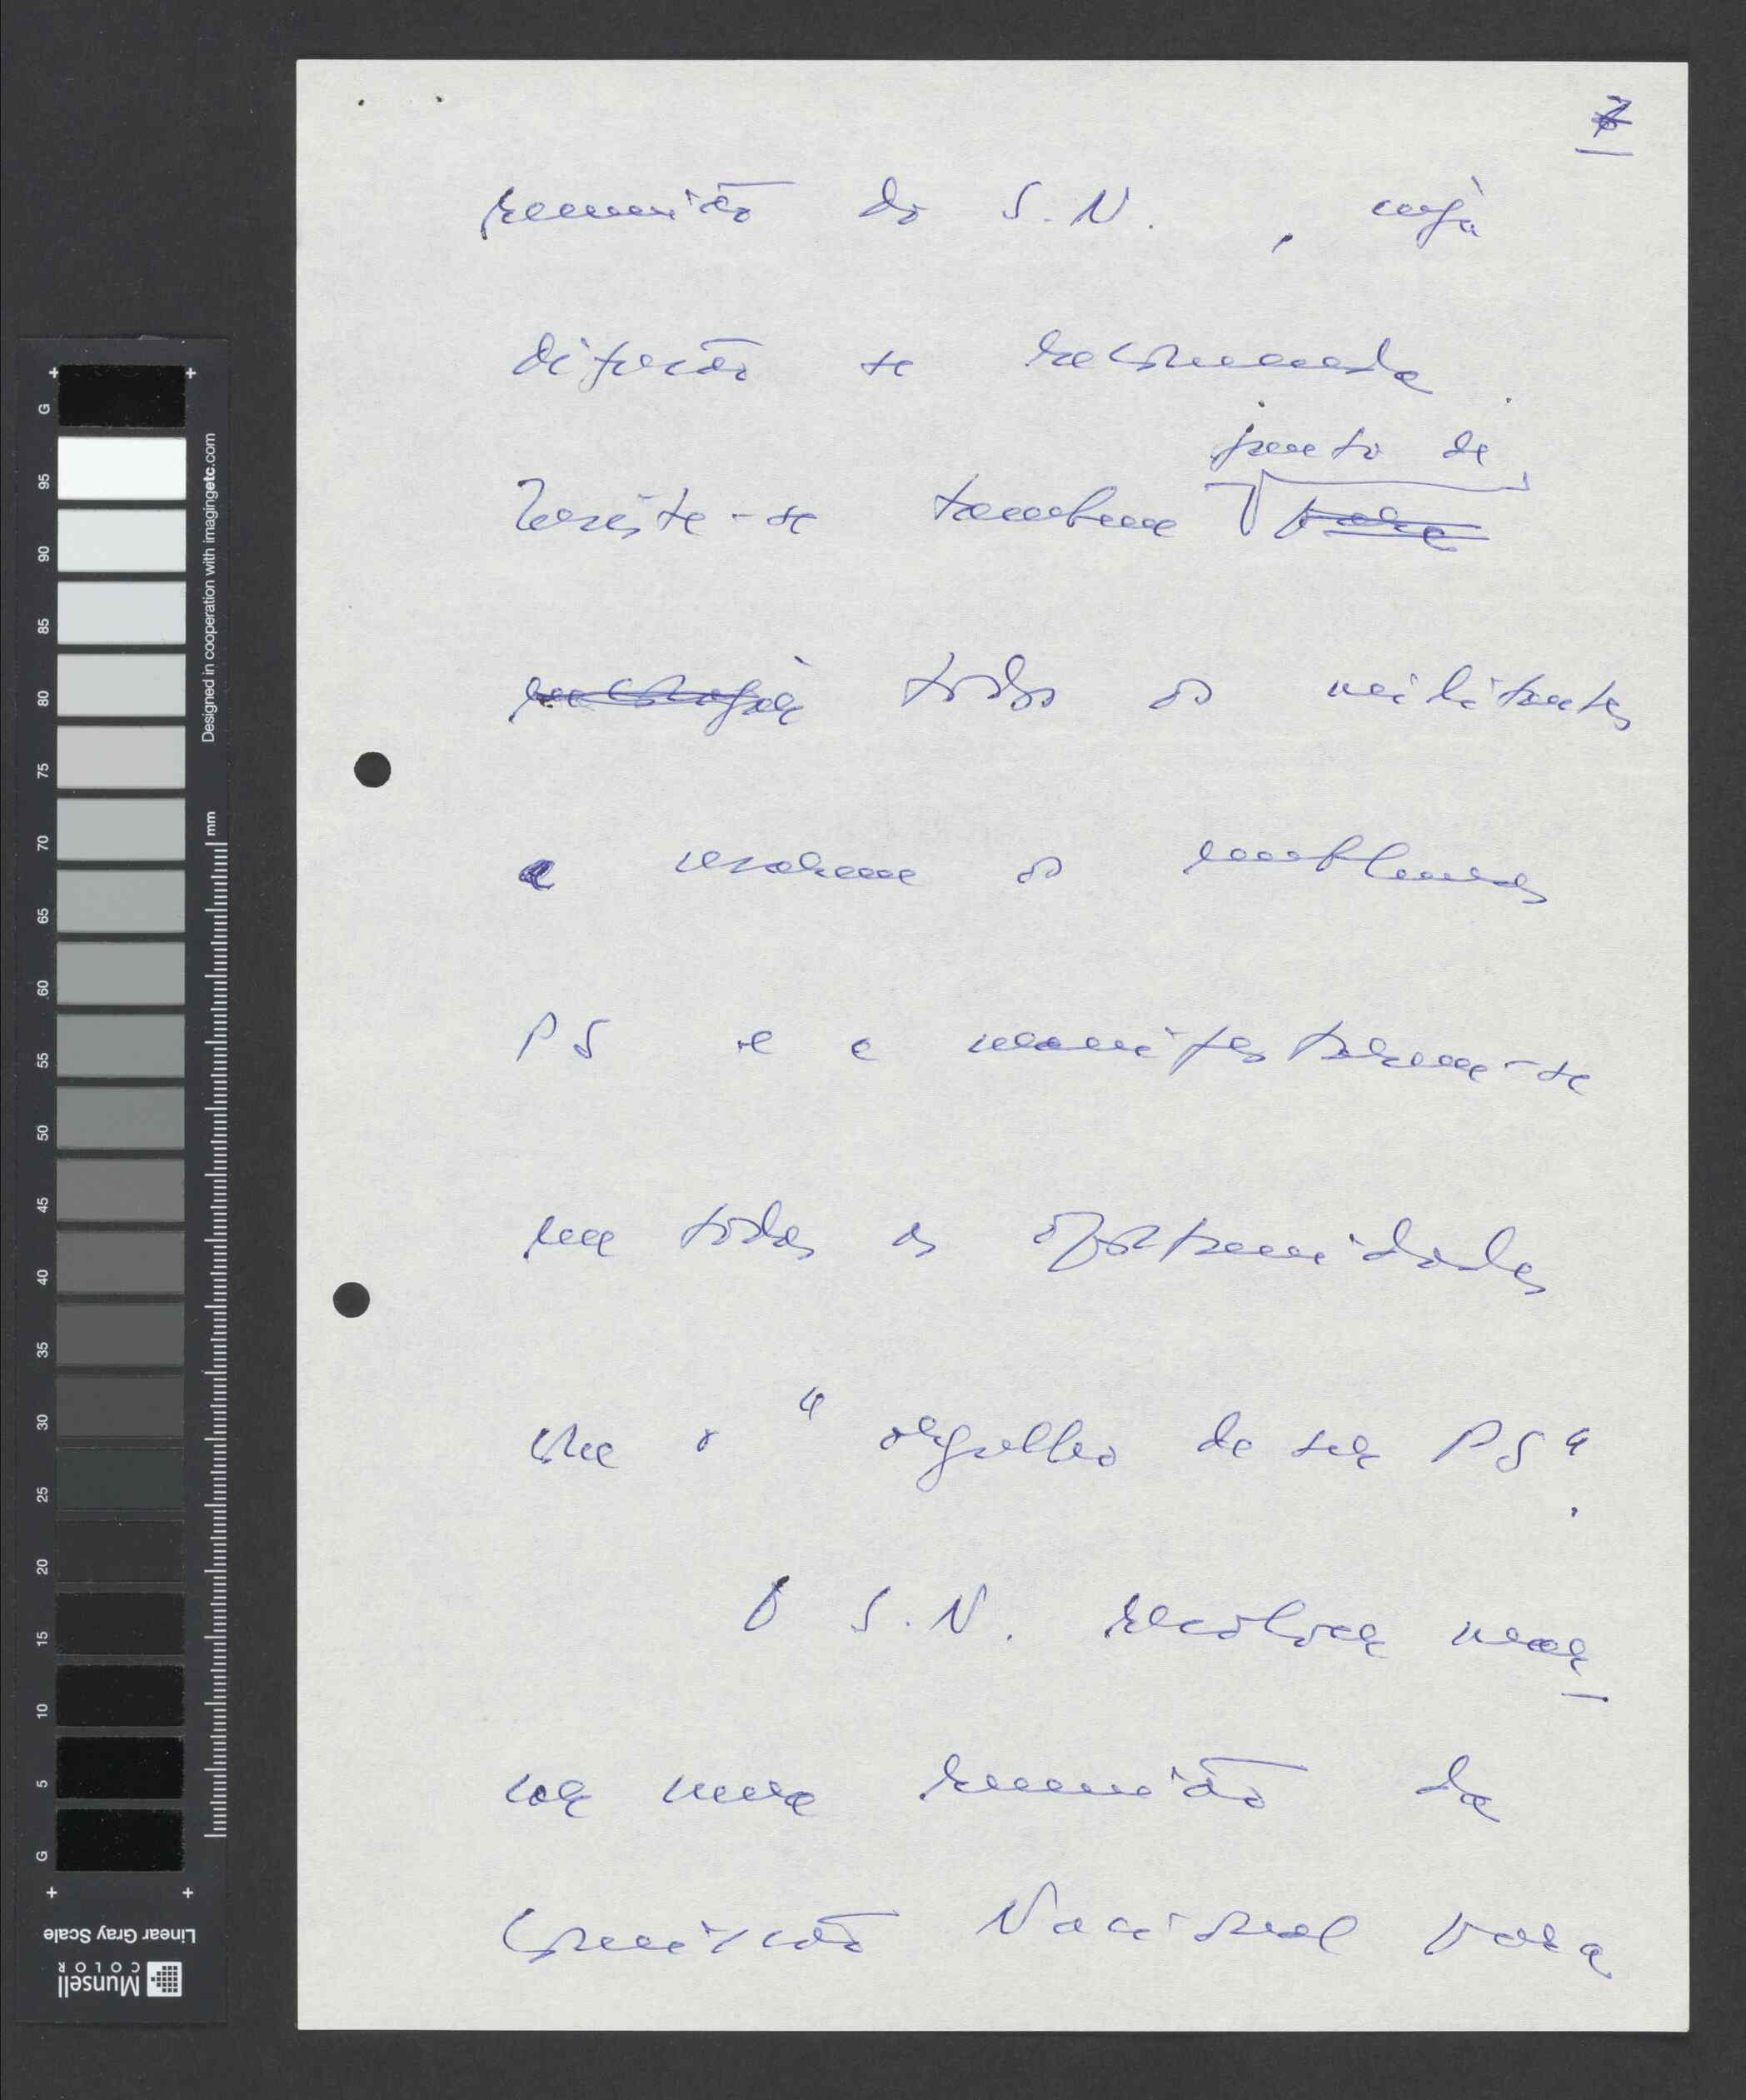 7
reunião do S.N. , cuja
difusão se recomenda.
junto de
Insiste-se também para
todos os militantes
a usarem os emblemas
PS e a manifestarem-se
em todas as oportunidades
com o "orgulho de ser PS".
O S.N. resolveu mar-
car uma reunião da
Comissão Nacional para
G 95 90 85 80 75 70 65 60 55 50 45 40 35 30 25 20 15 10 5 G
Designed in cooperation with imagingetc.com
mm
Munsell COLOR
Linear Gray Scale